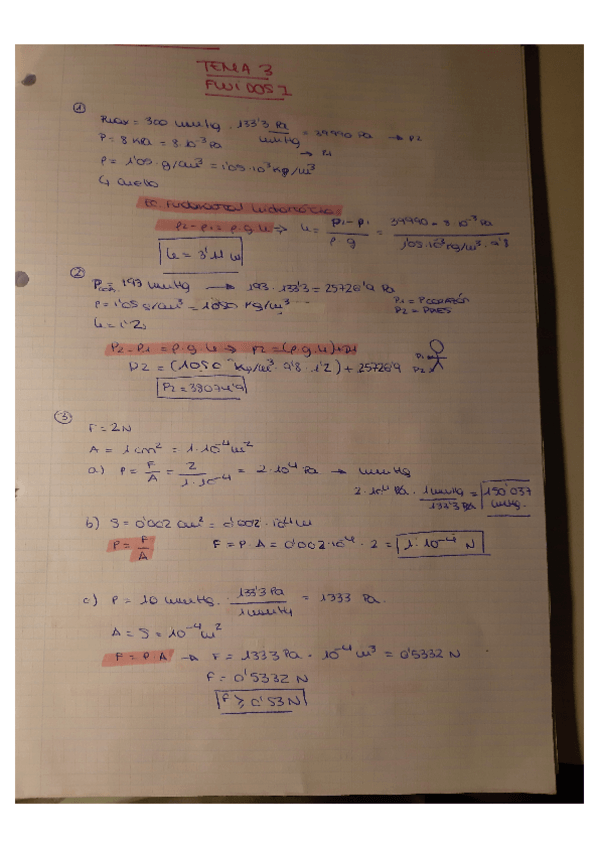 TEMA 3
FLUIDOS I
①
Pmax = 300 mmHg · 133'3 Pa/mmHg = 39990 Pa → P2
P = 8 KPa = 8·10⁻³ Pa → P1
ρ = 1'05 · g/cm³ = 1'05·10³ Kg/m³
EC. Fundamental hidrostática
P2-P1 = ρ·g·h → h = P2-P1 / ρ·g = 39990 - 8·10⁻³ Pa / 1'05·10³ Kg/m³ · 9'8
h = 3'11 m
②
193 mmHg → 193·133'3 = 25726'9 Pa
ρ = 1'05 g/cm³ = 1050 Kg/m³
P1 = P CORAZÓN
P2 = P PIES
h = 1'2
P2-P1 = ρ·g·h → P2 = (ρ·g·h) + P1
P2 = (1050 Kg/m³ · 9'8 · 1'2) + 25726'9
P1
P2
P2 = 38074'9
③
F = 2N
A = 1 cm² = 1·10⁻⁴ m²
a) P = F/A = 2 / 1·10⁻⁴ = 2·10⁴ Pa → mmHg
2·10⁴ Pa · 1 mmHg / 133'3 Pa = 150'037 mmHg.
b) S = 0'002 cm² = 0'002·10⁻⁴ m
P = F/A F = P·A = 0'002·10⁻⁴ · 2 = 1·10⁻⁴ N
c) P = 10 mmHg · 133'3 Pa / 1 mmHg = 1333 Pa.
A = S = 10⁻⁴ m²
F = P·A → F = 1333 Pa · 10⁻⁴ m³ = 0'5332 N
F = 0'5332 N
F ≥ 0'53 N